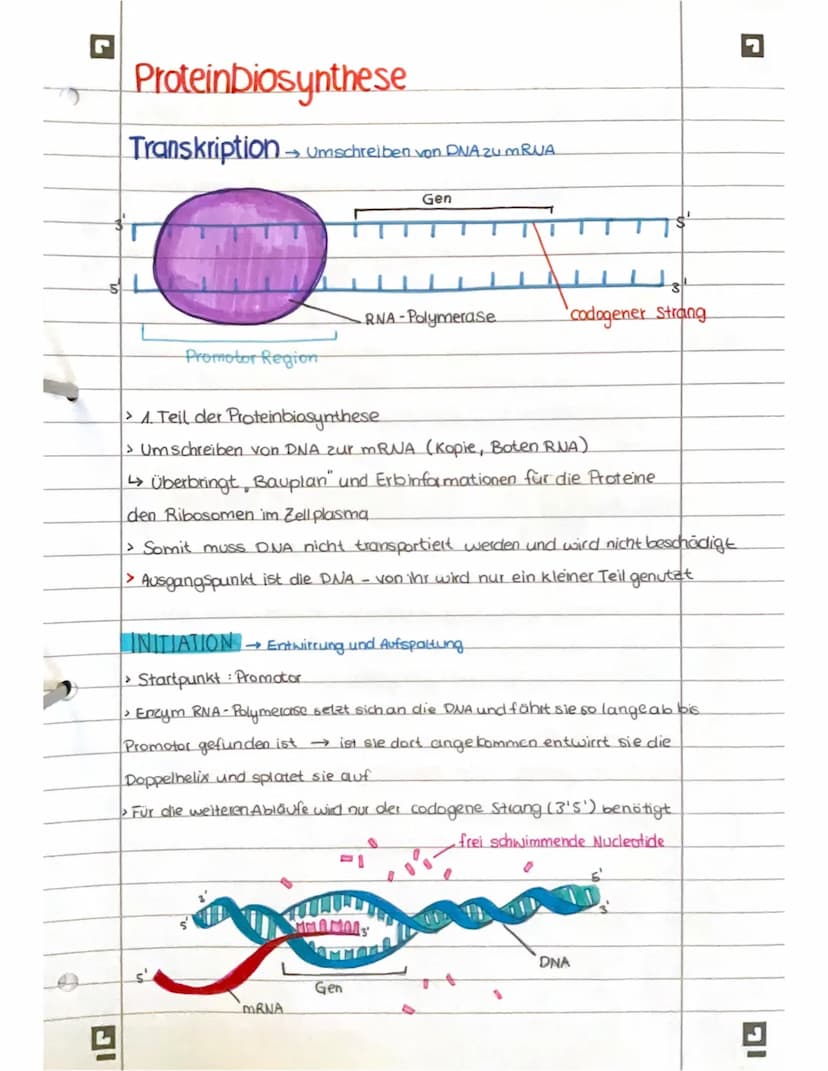 Proteinbiosynthese
Transkription → Umschreiben von DNA zu mRNA
Gen
3' 5'
5' 3'
RNA-Polymerase
codogener Strang
Promotor Region
> 1. Teil der Proteinbiosynthese
> Umschreiben von DNA zur mRNA (Kopie, Boten RNA)
↳ Überbringt „Bauplan" und Erbinformationen für die Proteine
den Ribosomen im Zellplasma
> Somit muss DNA nicht transportiert werden und wird nicht beschädigt
> Ausgangspunkt ist die DNA - von ihr wird nur ein kleiner Teil genutzt
INITIATION → Entwirrung und Aufspaltung
> Startpunkt : Promotor
> Enzym RNA-Polymerase setzt sich an die DNA und fährt sie so lange ab bis
Promotor gefunden ist → ist sie dort angekommen entwirrt sie die
Doppelhelix und splatet sie auf
> Für die weiteren Abläufe wird nur der codogene Strang (3'5') benötigt
frei schwimmende Nucleotide
3' 5'
5' 3'
3'
5'
DNA
Gen
mRNA